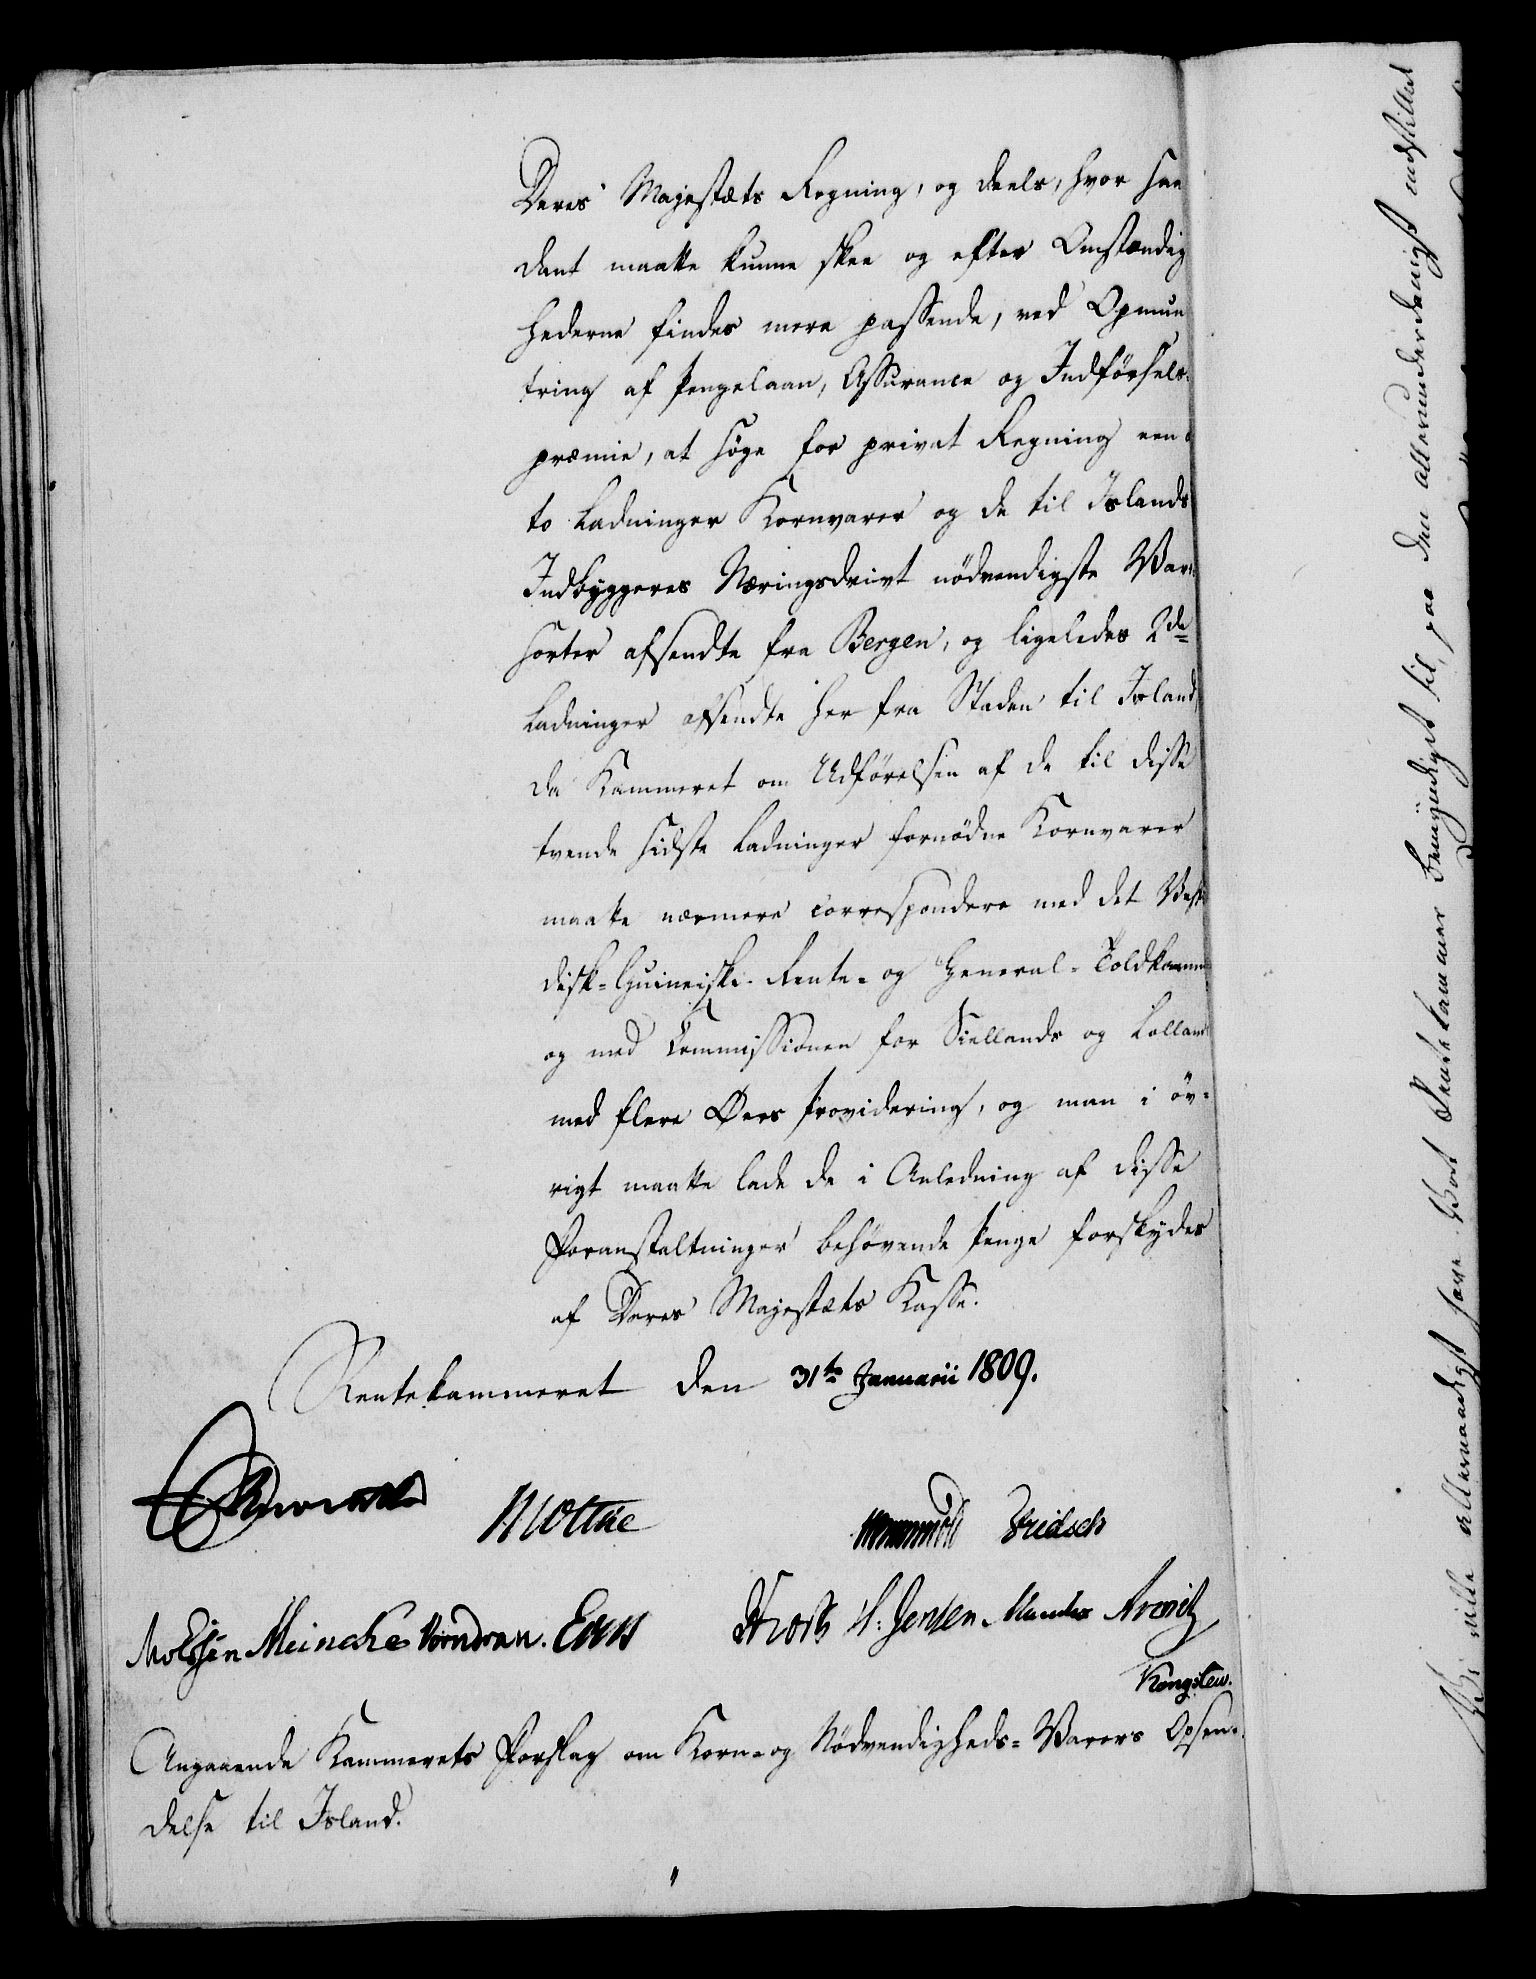 Deres Majestæts Regning, og deels, hvor saa
dant maatte kunne skee og efter Omstændig
hederne findes mere passende, ved Opmun
tring af Pengelaan, Assurance og Indførsels-
præmie, at søge for privat Regning een à
to Ladninger Kornvarer og de til Islands
Indbyggeres Næringsdrivt nødvendigste Vare
sorter afsendte fra Bergen, og ligeledes 2de
Ladninger afsendte her fra Staden til Island
da Kammeret om Udførelsen af de til disse
tvende sidste Ladninger fornødne Kornvarer
maatte nærmere correspondere med det Vestin
disk-Guineiske Rente- og General-Toldkamm
og med Commissionen for Siellands og Lolland
med flere Øers Providering, og man i øv-
rigt maatte lade de i Anledning af disse
Foranstaltninger behøvende Penge forskydes
af Deres Majestæts Kasse.
Rentekammeret den 31te Januarii 1809.
Wormskiold Fridsch
Meincke Vorndran. H: Jensen
Kongslew.
Angaaende Kammerets Forslag om Korn- og Nødvendigheds-Varers Opsen-
delse til Island.
Vi ville allernaadigst have Vort Rentekammer bemyndiget til, paa den allerunderdanigst indstillet